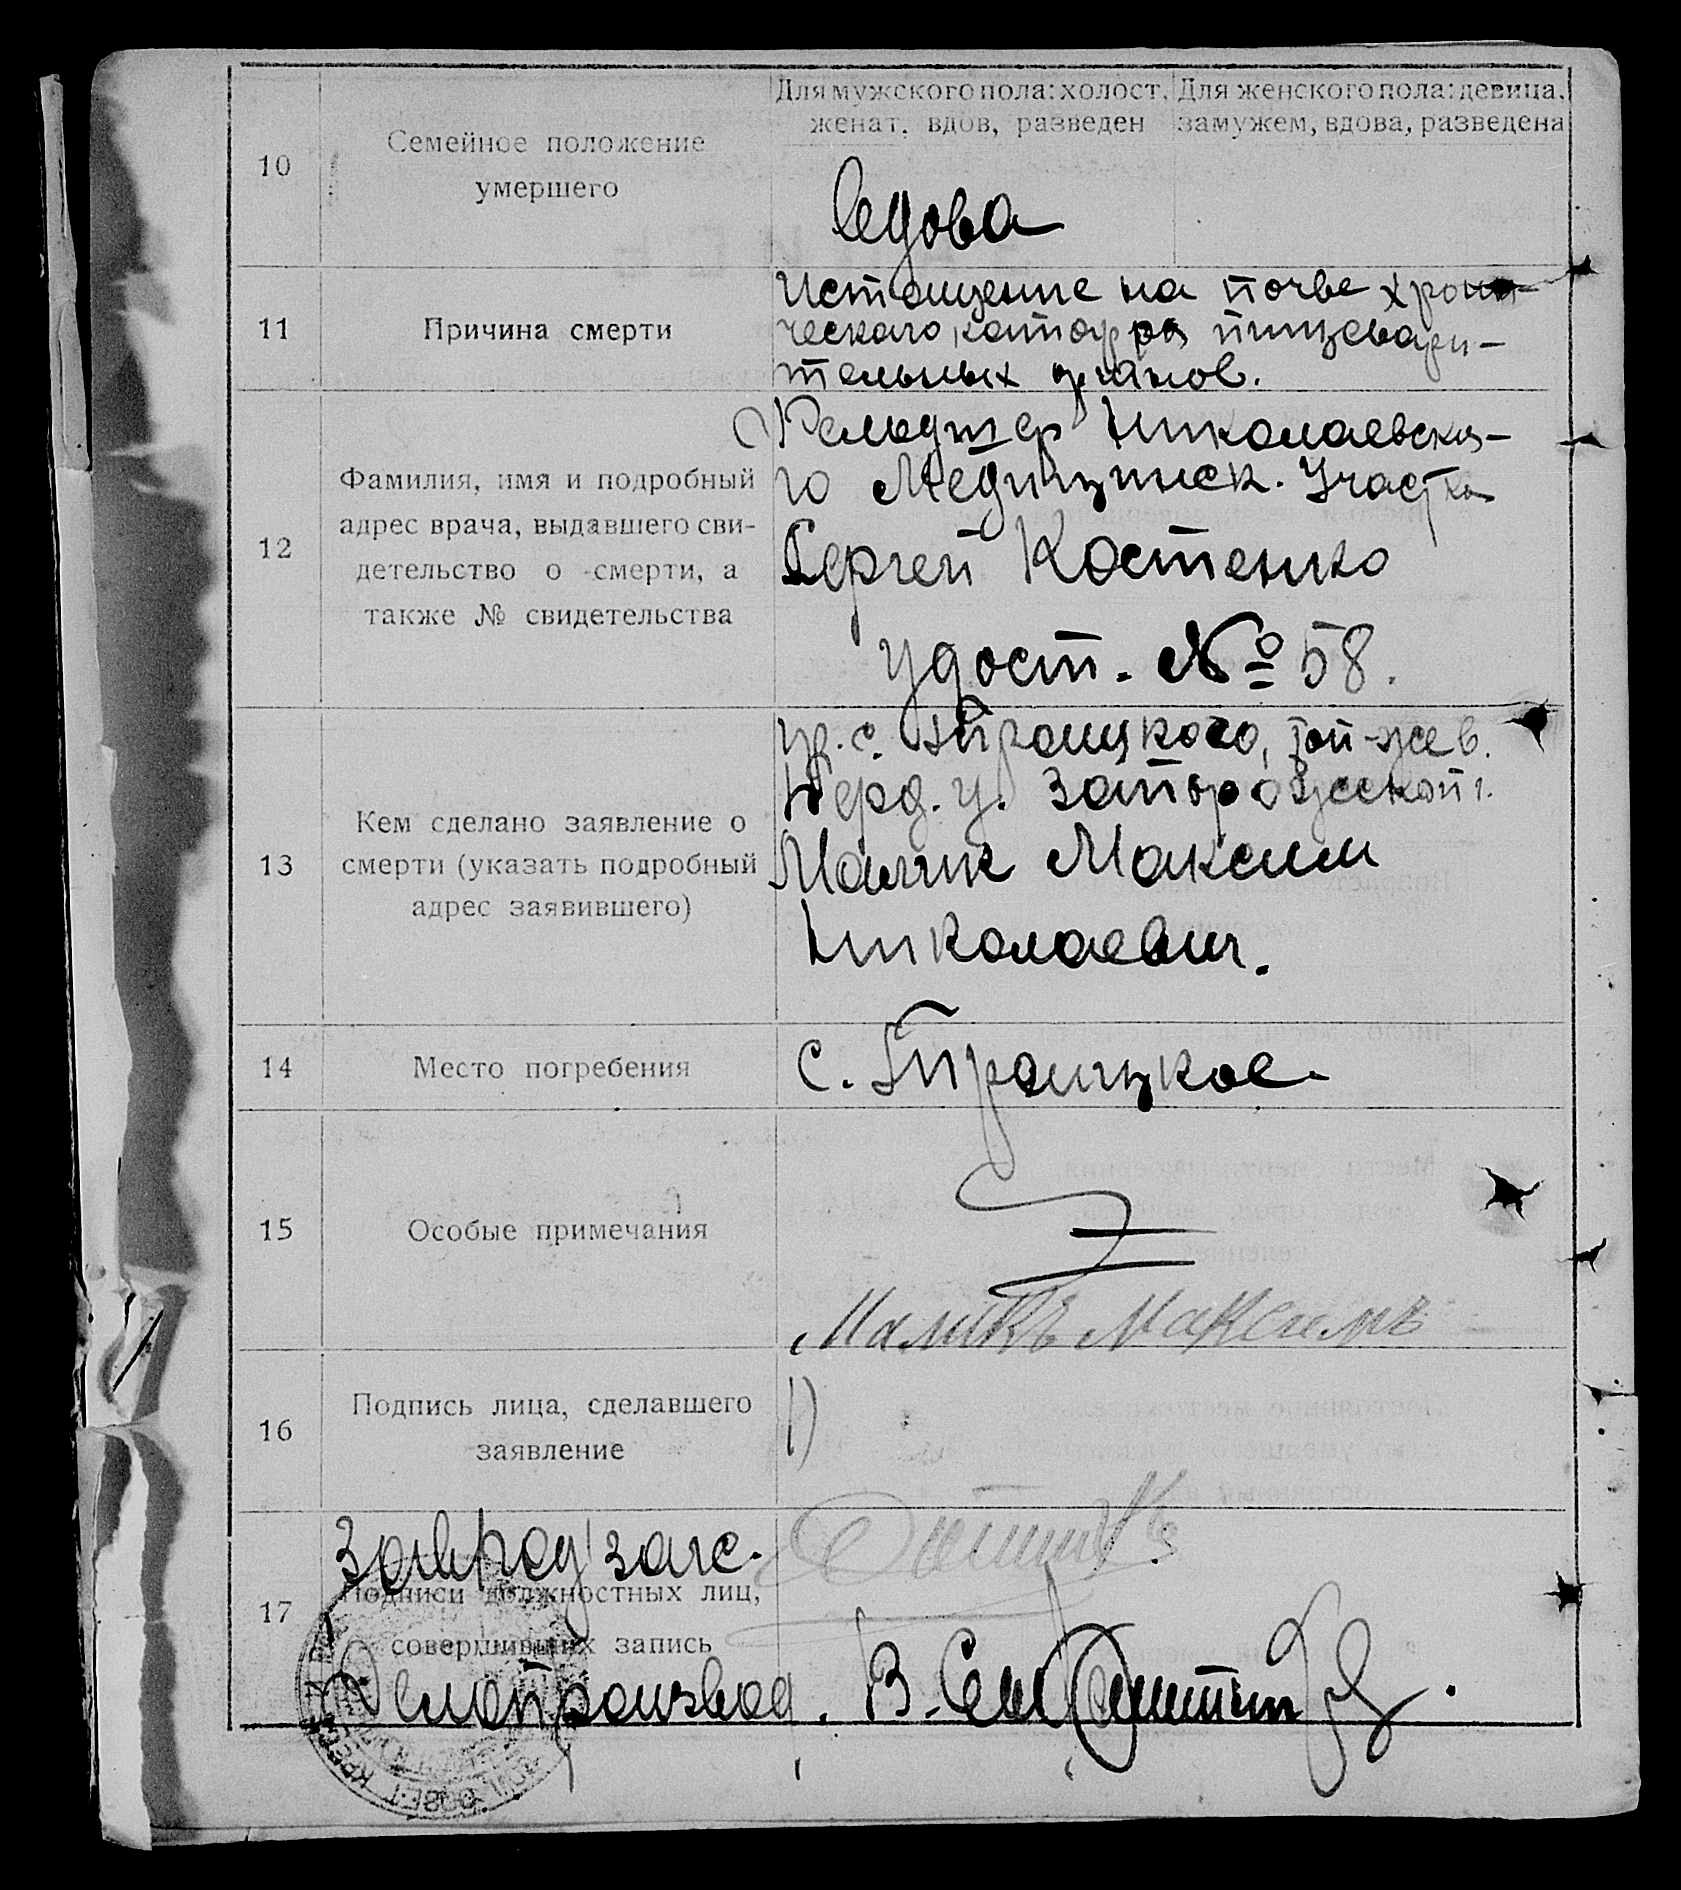 Для мужского пола: холост, женат, вдов, разведен
Для женского пола: девица, замужем, вдова, разведена
10
Семейное положение
умершего
11
Причина смерти
Истощение на почве хрони-
ческаго катарра пищевари-
тельных органов.
12
Фамилия, имя и подробный
адрес врача, выдавшего сви-
детельство о смерти, а
также № свидетельства
Николаевска-
го Медицинск. Участка
Сергей Костенко
удост. № 58.
13
Кем сделано заявление о
смерти (указать подробный
адрес заявившего)
гр. с. Троицкого, той-же в.
Берд. у. Запорожской г.
Малик Максим
Николаевич.
14
Место погребения
с. Троицкое.
15
Особые примечания
Маликъ Максимъ
16
Подпись лица, сделавшего
заявление
1)
17
Завпод загс.
Подписи должностных лиц,
совершивших запись
Делопроизвод. В.